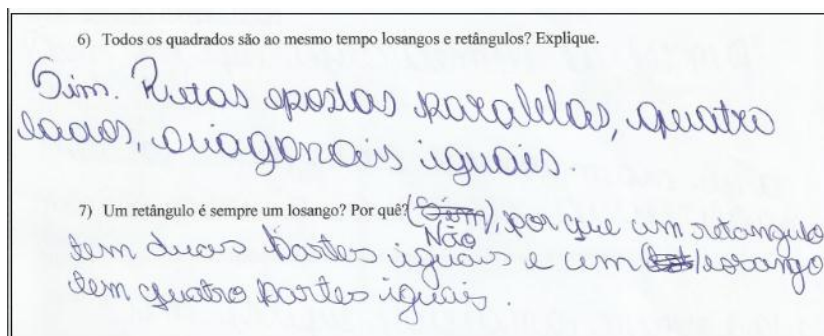 6) Todos os quadrados são ao mesmo tempo losangos e retângulos? Explique.
Sim. Retas opostas paralelas, quatro
lados, diagonais iguais.
7) Um retângulo é sempre um losango? Por quê? (Sim), por que um retangulo
Não
tem duas partes iguais e um losango
tem quatro partes iguais.